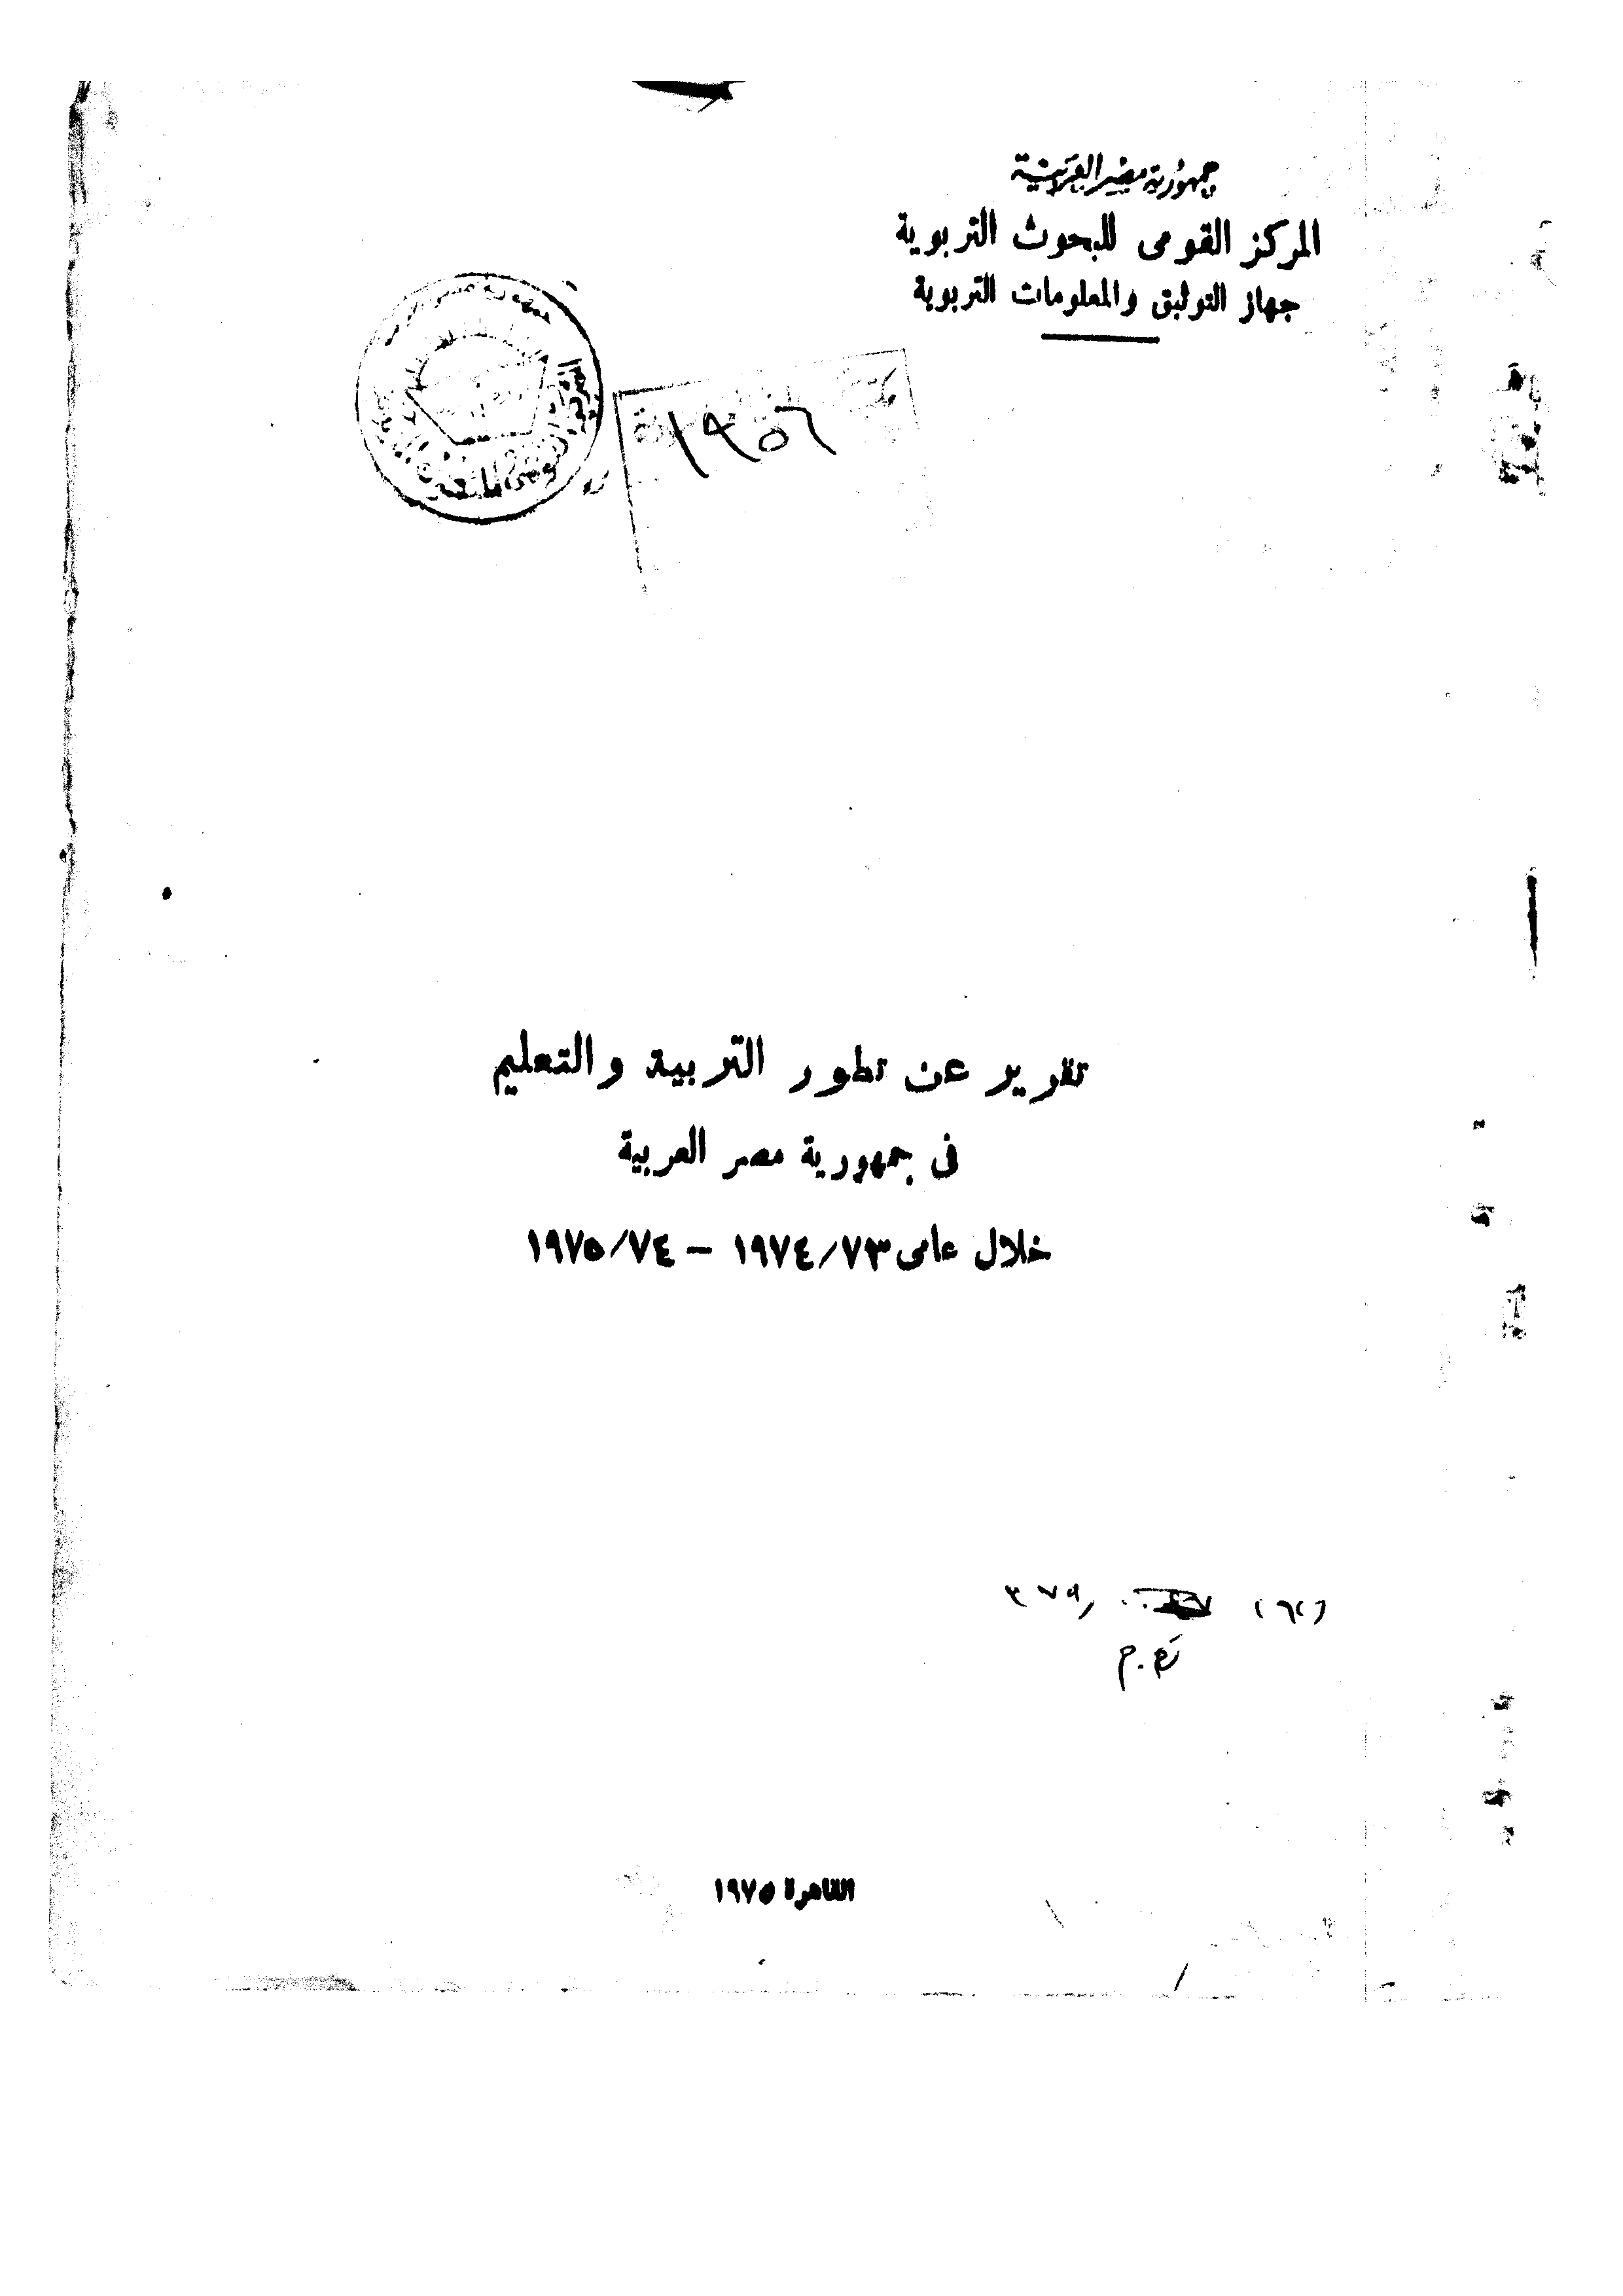 جمهورية مصر العربية
المركز القومى للبحوث التربوية
جهاز التوثيق والمعلومات التربوية
١٩٥٦
تقرير عن تطور التربية والتعليم
فى جمهورية مصر العربية
خلال عامى ١٩٧٤/٧٣ – ١٩٧٥/٧٤
٣٧٩,
القاهرة ١٩٧٥